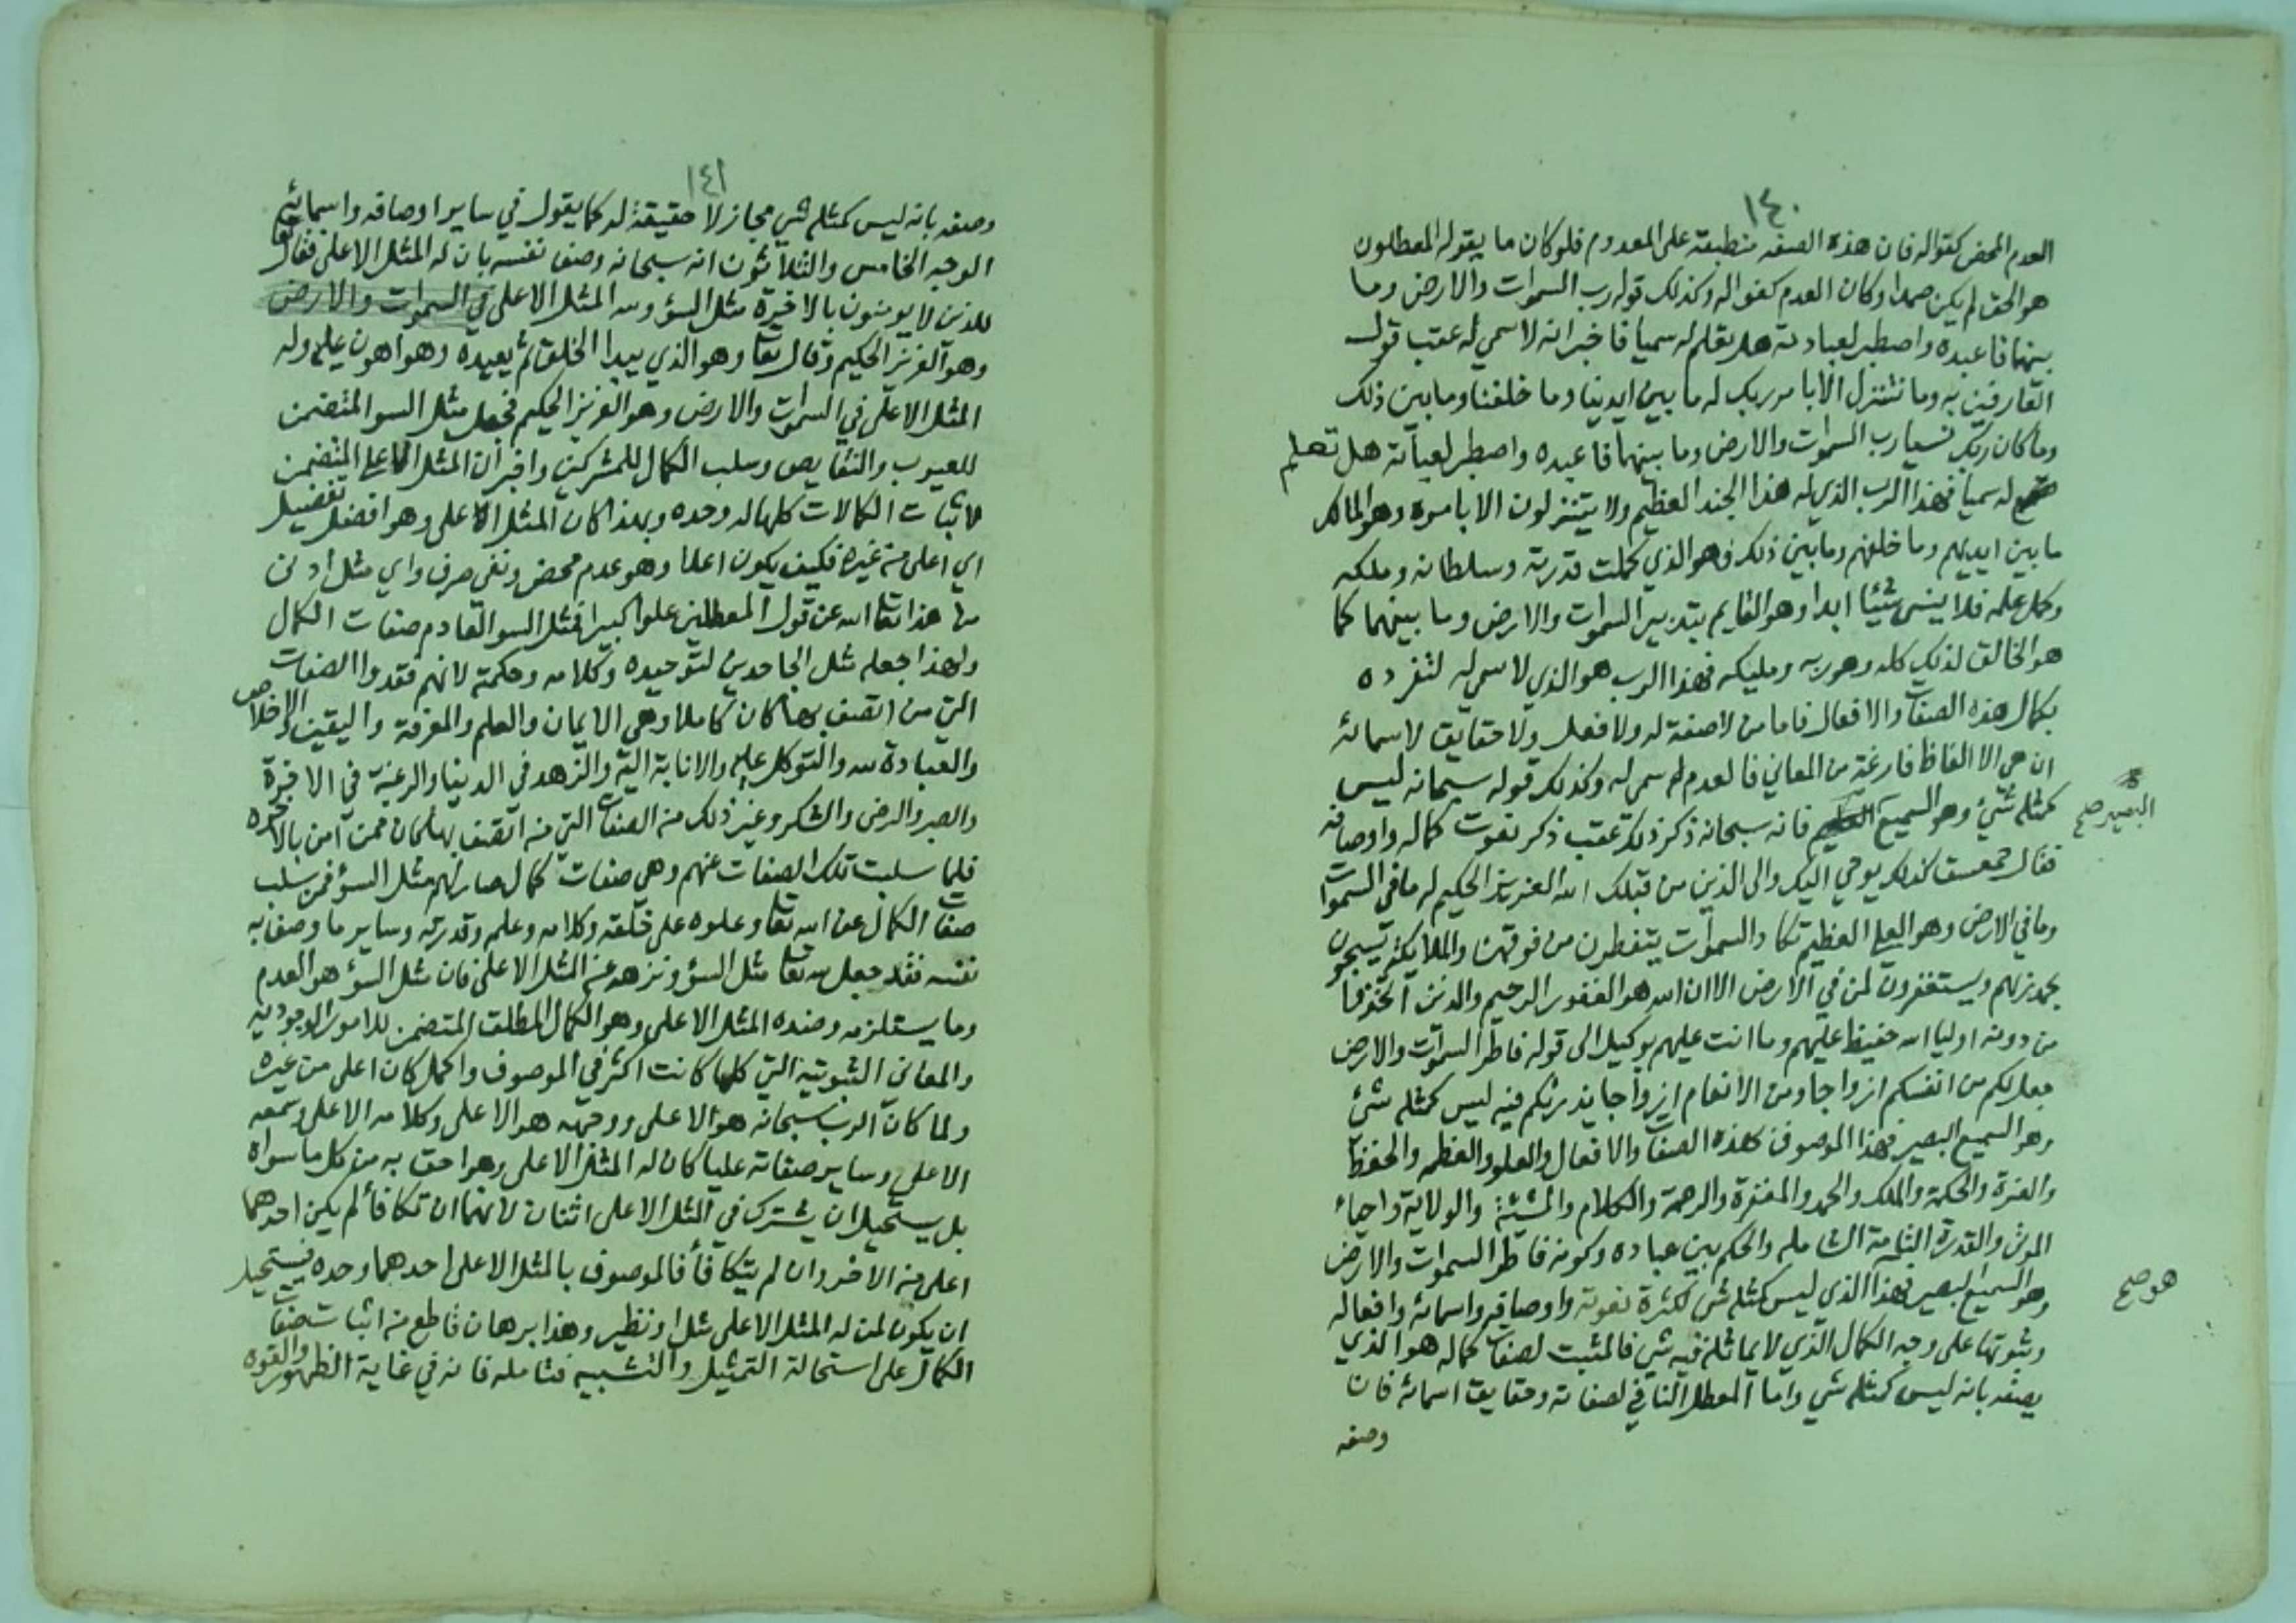 ١٤٠
العدم المحض كفوا له فان هذه الصفه منطبقة على المعدوم فلو كان ما يقوله المعطلون
هو الحق لم يكن صمدا وكان العدم كفوا له وكذلك قوله رب السموات والارض وما
بينهما فاعبده واصطبر لعبادته هل تعلم له سميا فاخبر انه لا سمي له عقب قول
العارفين به وما نتنزل الا بامر ربك له ما بين ايدينا وما خلفنا وما بين ذلك
وما كان ربك نسيا رب السموات والارض وما بينهما فاعبده واصطبر لعباته هل تعلم
له سميا فهذا الرب الذي له هذا الجند العظيم ولا يتنزلون الا بامره وهو المالك
ما بين ايديهم وما خلفهم وما بين ذلك فهو الذي كملت قدرته وسلطانه وملكه
وكمل علمه فلا ينسى شيئا ابدا وهو القايم بتدبير السموات والارض وما بينهما كما
هو الخالق لذلك كله وهو ربه ومليكه فهذا الرب هو الذي لا سمي له لتفرده
بكمال هذه الصفات والافعال فاما من لا صفة له ولا فعل ولا حقايق لاسمائه
ان هي الا الفاظ فارغة من المعاني فالعدم له سمي له وكذلك قوله سبحانه ليس
كمثله شيء وهو السميع فانه سبحانه ذكر ذلك عقب ذكر نعوت كماله واوصافه
البصير صح
فقال حمعسق كذلك يوحي اليك والى الذين من قبلك الله العزيز الحكيم له ما في السموات
وما في الارض وهو العلي العظيم تكاد السموات يتفطرون من فوقهن والملايكة يسبحون
بحمد ربهم ويستغفرون لمن في الارض الا ان الله هو الغفور الرحيم والذين اتخذوا
من دونه اوليا الله حفيظ عليهم وما انت عليهم بوكيل الى قوله فاطر السموات والارض
جعل لكم من انفسكم ازواجا ومن الانعام ازواجا يذرؤكم فيه ليس كمثله شيء
وهو السميع البصير فهذا الموصوف بهذه الصفات والافعال والعلو والعظمه والحفظ
والعزة والحكمة والملك والحمد والمغفرة والرحمة والكلام والمشيئة والولاية واحياء
الموتى والقدرة التامة الشامله والحكم بين عباده وكونه فاطر السموات والارض
وهو السميع البصير فهذا الذي ليس كمثله شي لكثرة نعوته واوصافه واسمائه وافعاله
هو صح
وثبوتها على وجه الكمال الذي لا يماثله فيه شي فالمثبت لصفات كماله هو الذي
يصفه بانه ليس كمثله شي واما المعطل النافي لصفاته وحقايق اسمائه فان
وصفه
١٤١
وصفه بانه ليس كمثله شي مجاز لا حقيقة له كما يقول في ساير اوصافه واسمائه
الوجه الخامس والثلاثون انه سبحانه وصف نفسه بان له المثل الاعلى فقال تعا
للذين لا يومنون بالاخرة مثل السؤ ولله المثل الاعلى في السموات والارض
وهو العزيز الحكيم وقال تعا وهو الذي يبدا الخلق ثم يعيده وهو اهون عليه وله
المثل الاعلى في السموات والارض وهو العزيز الحكيم فجعل مثل السو المتضمن
للعيوب والنقايص وسلب الكمال للمشركين واخبر ان المثل الاعلى المتضمن
لاثبات الكمالات كلها له وحده وبهذا كان المثل الاعلى وهو افضل تفضيل
اي اعلى من غيره فكيف يكون اعلا وهو عدم محض ونفي صرف واي مثل ادنى
من هذا تعا الله عن قول المعطلين علوا كبيرا فمثل السو العادم صفات الكمال
ولهذا جعله مثل الجاحدين لتوحيده وكلامه وحكمته لانهم فقدوا الصفات
التي من اتصف بها كان كاملا وهي الايمان والعلم والمعرفة واليقين والاخلاص
والعبادة لله والتوكل عليه والانابة اليه والزهد في الدنيا والرغبة في الاخرة
والصبر والرضى والشكر وغير ذلك من الصفات التي من اتصف بها كان ممن آمن بالاخره
فلما سلبت تلك الصفات عنهم وهي صفات كمال صار لهم مثل السؤ فمن سلب
صفات الكمال عن الله تعا وعلوه على خلقه وكلامه وعلمه وقدرته وساير ما وصف به
نفسه فقد جعل لله تعا مثل السؤ ونزهه عن المثل الاعلى فان مثل السؤ هو العدم
وما يستلزمه وضده المثل الاعلى وهو الكمال المطلق المتضمن للامور الوجوديه
والمعاني الثبوتية التي كلما كانت اكثر في الموصوف واكمل كان اعلى من غيره
ولما كان الرب سبحانه هو الاعلى ووجهه هو الاعلى وكلامه الاعلى وسمعه
الاعلى وساير صفاته عليا كان له المثل الاعلى وهو احق به من كل ما سواه
بل يستحيل ان يشترك في المثل الاعلى اثنان لانهما ان تكافأ لم يكن احدهما
اعلى من الاخر وان لم يتكافأ فالموصوف بالمثل الاعلى احدهما وحده فيستحيل
ان يكون لمن له المثل الاعلى مثل او نظير وهذا برهان قاطع من اثبات صفات
الكمال على استحالة التمثيل والتشبيه فتامله فانه في غاية الظهور والقوه